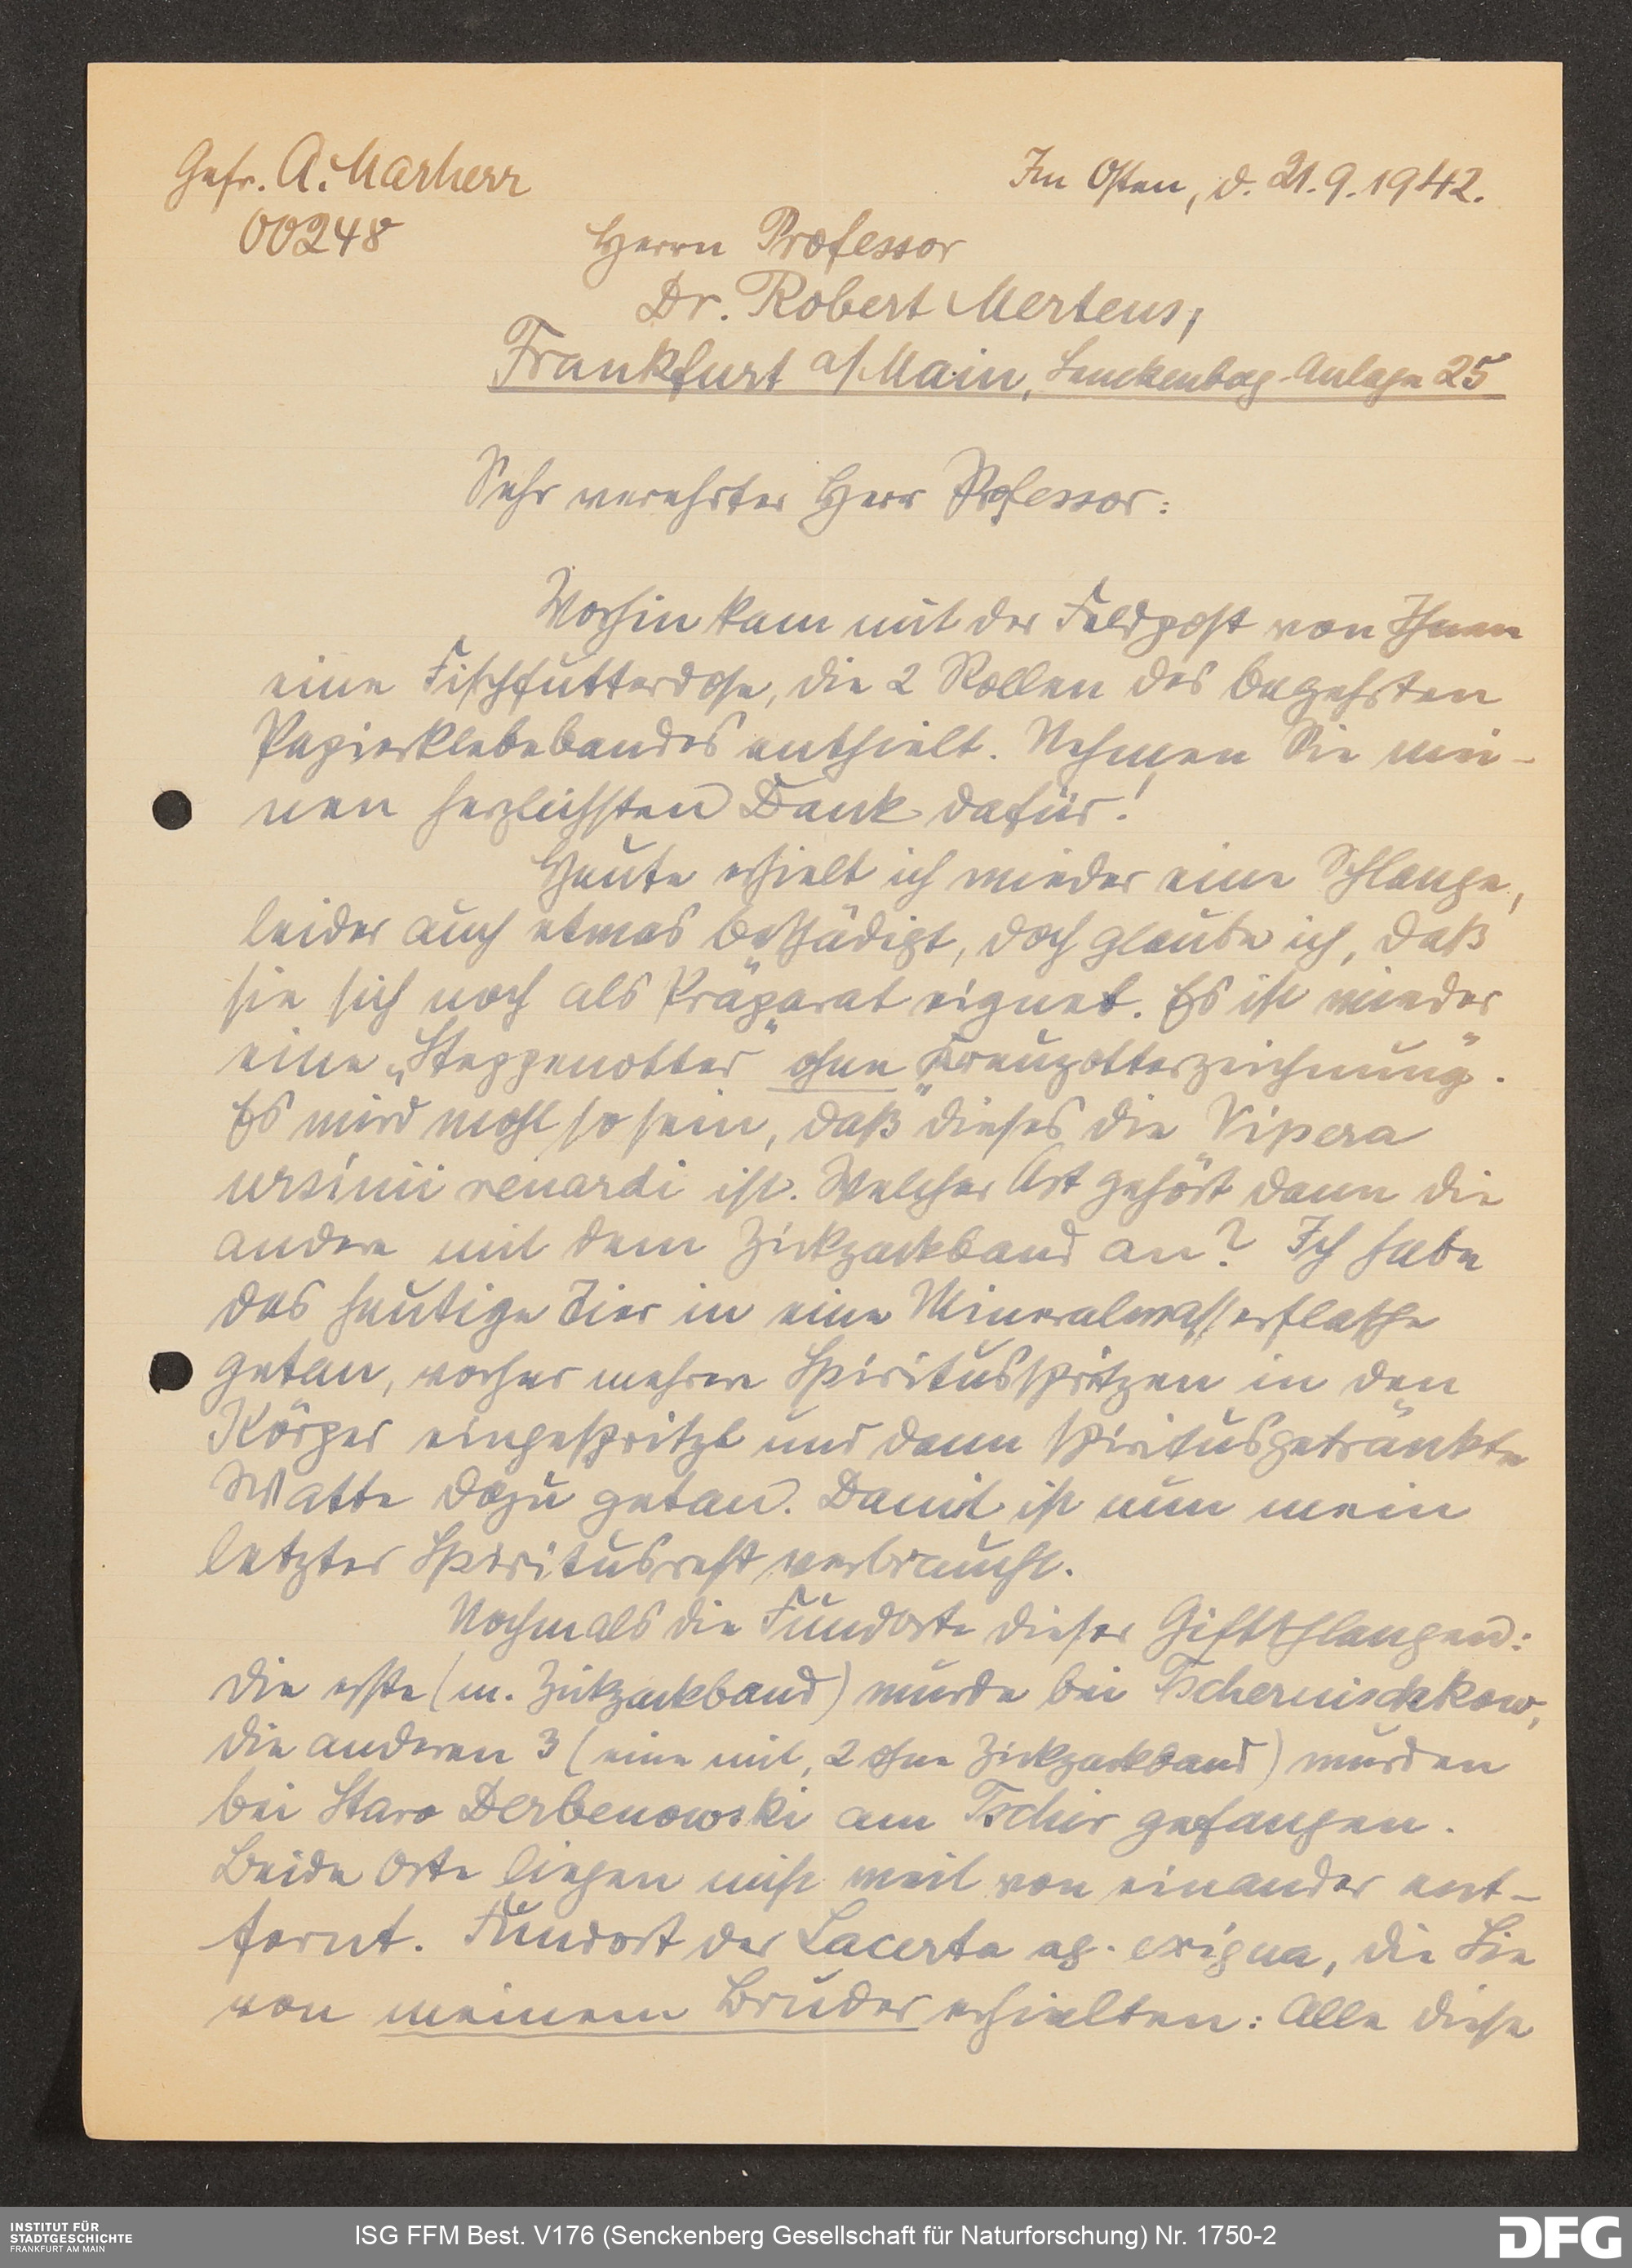 Gefr. A. Marherr
Im Osten, d. 21.9.1942.
00248
Herrn Professor
Dr. Robert Mertens,
Frankfurt a/Main, Senckenberg-Anlage 25
Sehr verehrter Herr Professor:
Vorhin kam mit der Feldpost von Ihnen
eine Fischfutterdose, die 2 Rollen des begehrten
Papierklebebandes enthielt. Nehmen Sie mei-
nen herzlichsten Dank dafür!
Heute erhielt ich wieder eine Schlange,
leider auch etwas beschädigt, doch glaube ich, daß
sie sich noch als Präparat eignet. Es ist wieder
eine „Steppenotter" ohne „Kreuzotterzeichnung".
Es wird wohl so sein, daß dieses die Vipera
ursinii renardi ist. Welcher Art gehört dann die
andere mit dem Zickzackband an? Ich habe
das heutige Tier in eine Mineralwasserflasche
getan, vorher mehrere Spiritusspritzen in den
Körper eingespritzt und dann spiritusgetränkte
Watte dazu getan. Damit ist nun mein
letzter Spiritusrest verbraucht.
Nochmals die Fundorte dieser Giftschlangen:
die erste (m. Zickzackband) wurde bei Tschernischkow,
die anderen 3 (eine mit, 2 ohne Zickzackband) wurden
bei Staro Derbenowski am Tschir gefangen.
Beide Orte liegen nicht weit von einander ent-
fernt. Fundort der Lacerta ag. exigua, die Sie
von meinem Bruder erhielten: Alle diese
INSTITUT FÜR
STADTGESCHICHTE
FRANKFURT AM MAIN
ISG FFM Best. V176 (Senckenberg Gesellschaft für Naturforschung) Nr. 1750-2
DFG